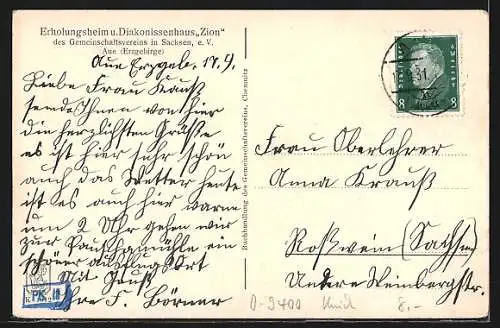 Erholungsheim u. Diakonissenhaus „Zion“
des Gemeinschaftsvereins in Sachsen, e. V.
Aue (Erzgebirge)
Aue Erzgeb. 17.9.
Liebe Frau Krauß
sende Ihnen von hier
die herzlichsten Grüße
es ist hier sehr schön
auch das Wetter heute
ist es auch hier warm
um 2 Uhr gehen wir
zur
schöner Ausflugsort
Mit Gruß
Ihre F. Börner
Buchhandlung des Gemeinschaftsvereins, Chemnitz
31
8 8
Frau Oberlehrer
Anna Krauß
Roßwein (Sachsen)
Untere Weinbergstr.
PK II
8.-